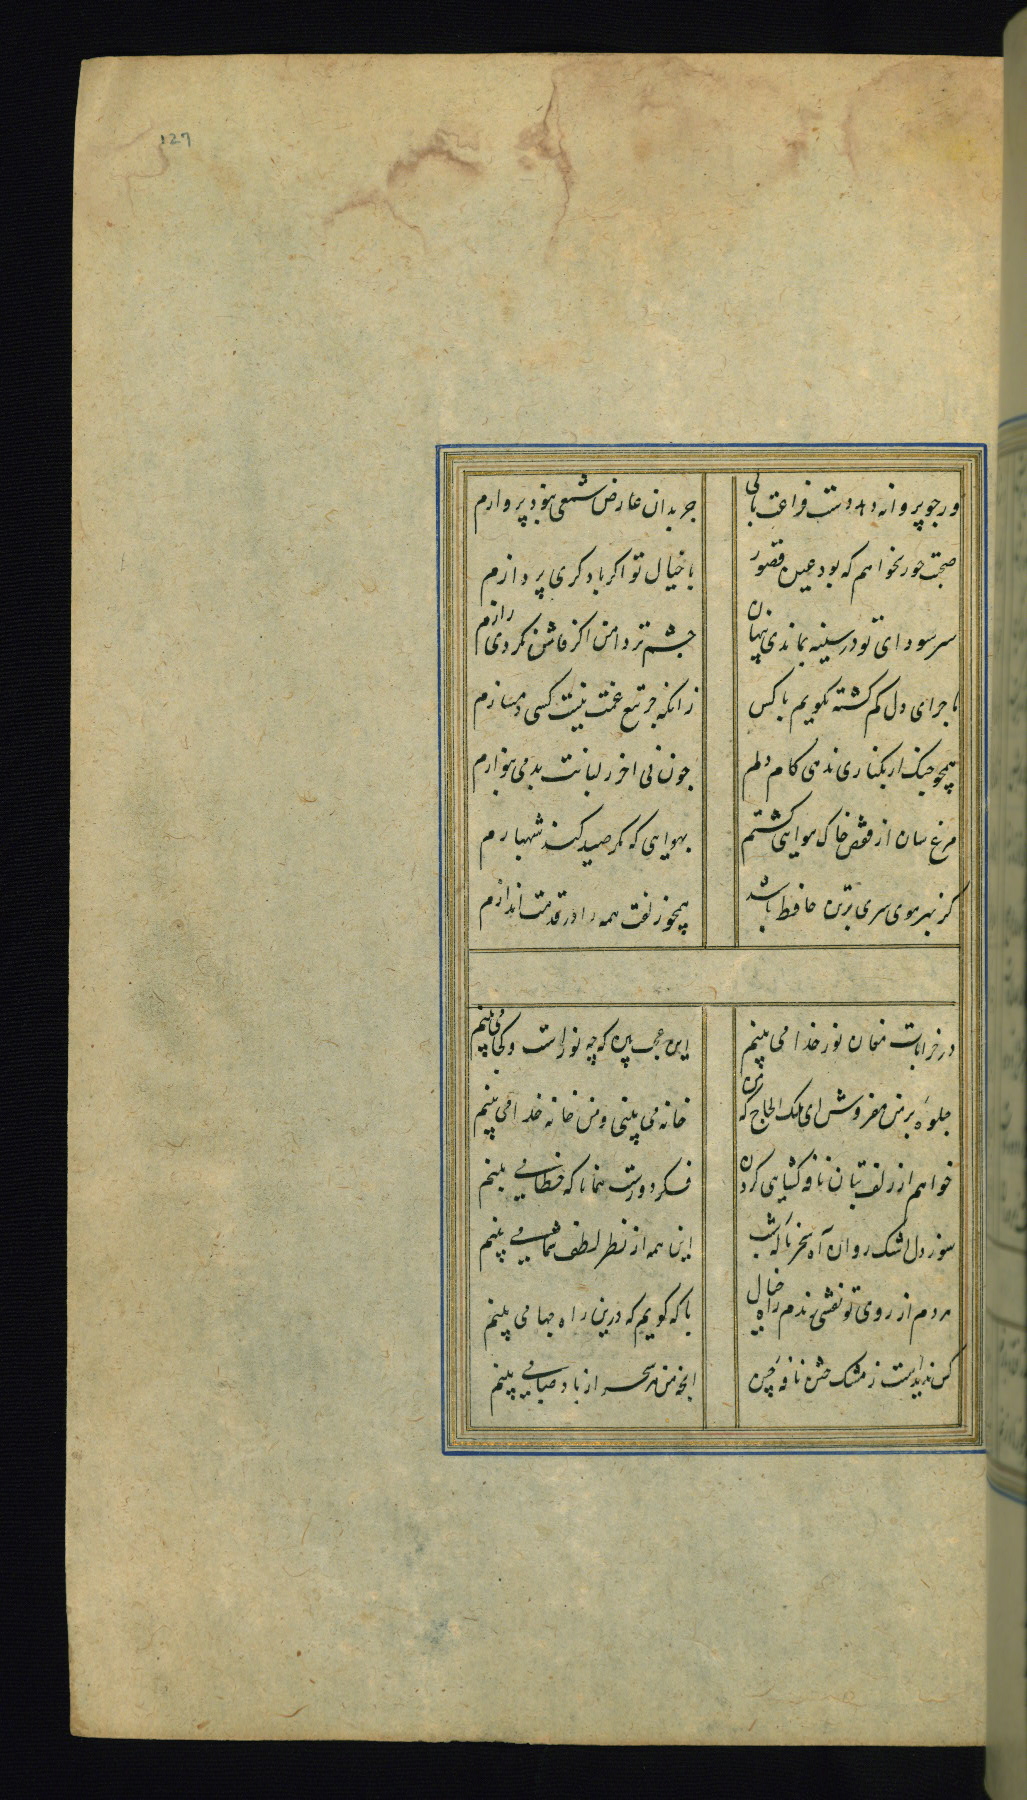 127
ور چو پروانه دهد دست فراغ بالی
جز بدان عارض شمعی نبود پروازم
صحبت حور نخواهم که بود عین قصور
با خیال تو اگر با دگری پردازم
سر سودای تو در سینه بماندی پنهان
چشم تر دامن اگر فاش نکردی رازم
ماجرای دل گم گشته نگویم با کس
زانکه جز تیغ غمت نیست کسی دمسازم
همچو چنگ ار بکناری ندهی کام دلم
چون نی آخر ز لبانت بدمی بنوازم
مرغ سان از قفص خاک هوایی گشتم
بهوایی که مگر صید کند شهبازم
گر بهر موی سری بر تن حافظ باشد
همچو زلفت همه را در قدمت اندازم
در خرابات مغان نور خدا می بینم
این عجب بین که چه نور است و کجا می بینم
جلوه بر من مفروش ای ملک الحاج که تو
خانه می بینی و من خانه خدا می بینم
خواهم از زلف بتان نافه گشایی کردن
فکر دورست همانا که خطا می بینم
سوز دل اشک روان آه سحر ناله شب
این همه از نظر لطف شما می بینم
هر دم از روی تو نقشی زندم راه خیال
با که گویم که درین راه چها می بینم
کس ندیدست ز مشک ختن و نافه چین
آنچه من هر سحر از باد صبا می بینم